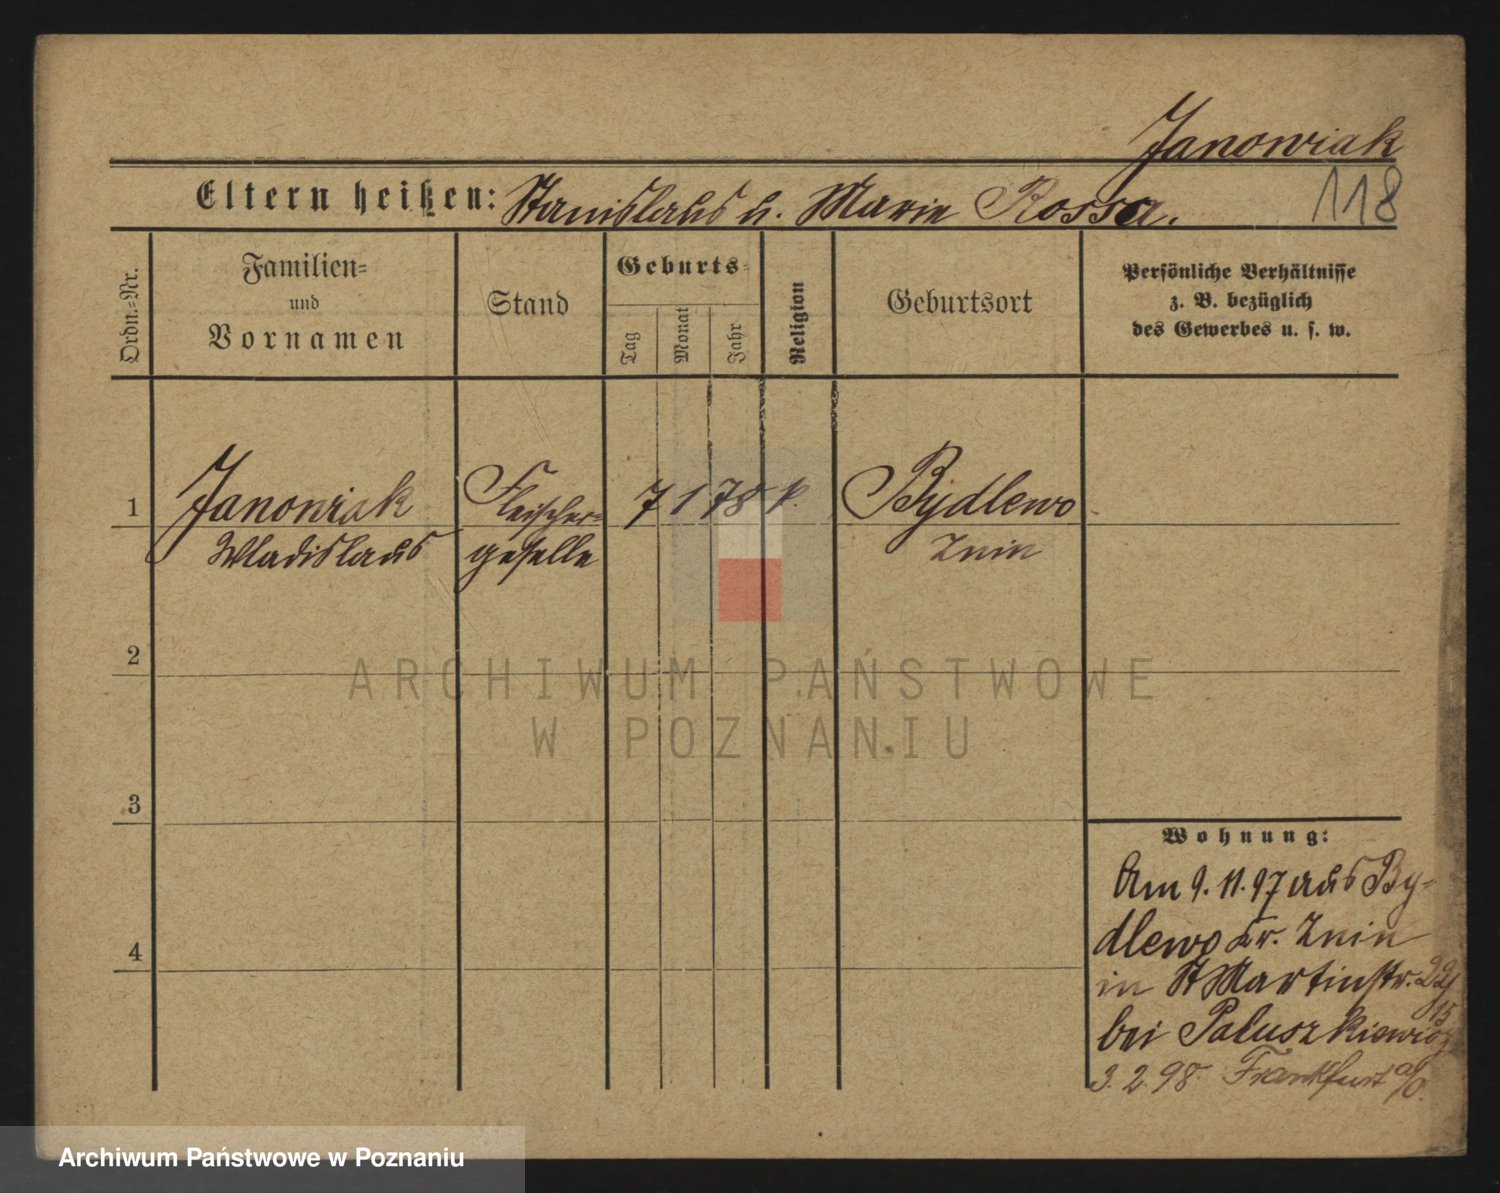 Janowiak
Eltern heißen: Stanislaus u. Marie Rossa.
118
Ordn.=Nr.
Familien=
und
Vornamen
Stand
Geburts=
Tag
Monat
Jahr
Religion
Geburtsort
Persönliche Verhältnisse
z. B. bezüglich
des Gewerbes u. s. w.
1
Janowiak
Wladislaus
Fleischer=
geselle
7 1 78 k.
Bydlewo
Znin
2
3
4
Wohnung:
Am 9. 11. 97 aus By=
dlewo Kr. Znin
in St Martinstr.
bei Paluszkiewicz
3. 2. 98. Frankfurt a/O.
ARCHIWUM PAŃSTWOWE
W POZNANIU
Archiwum Państwowe w Poznaniu